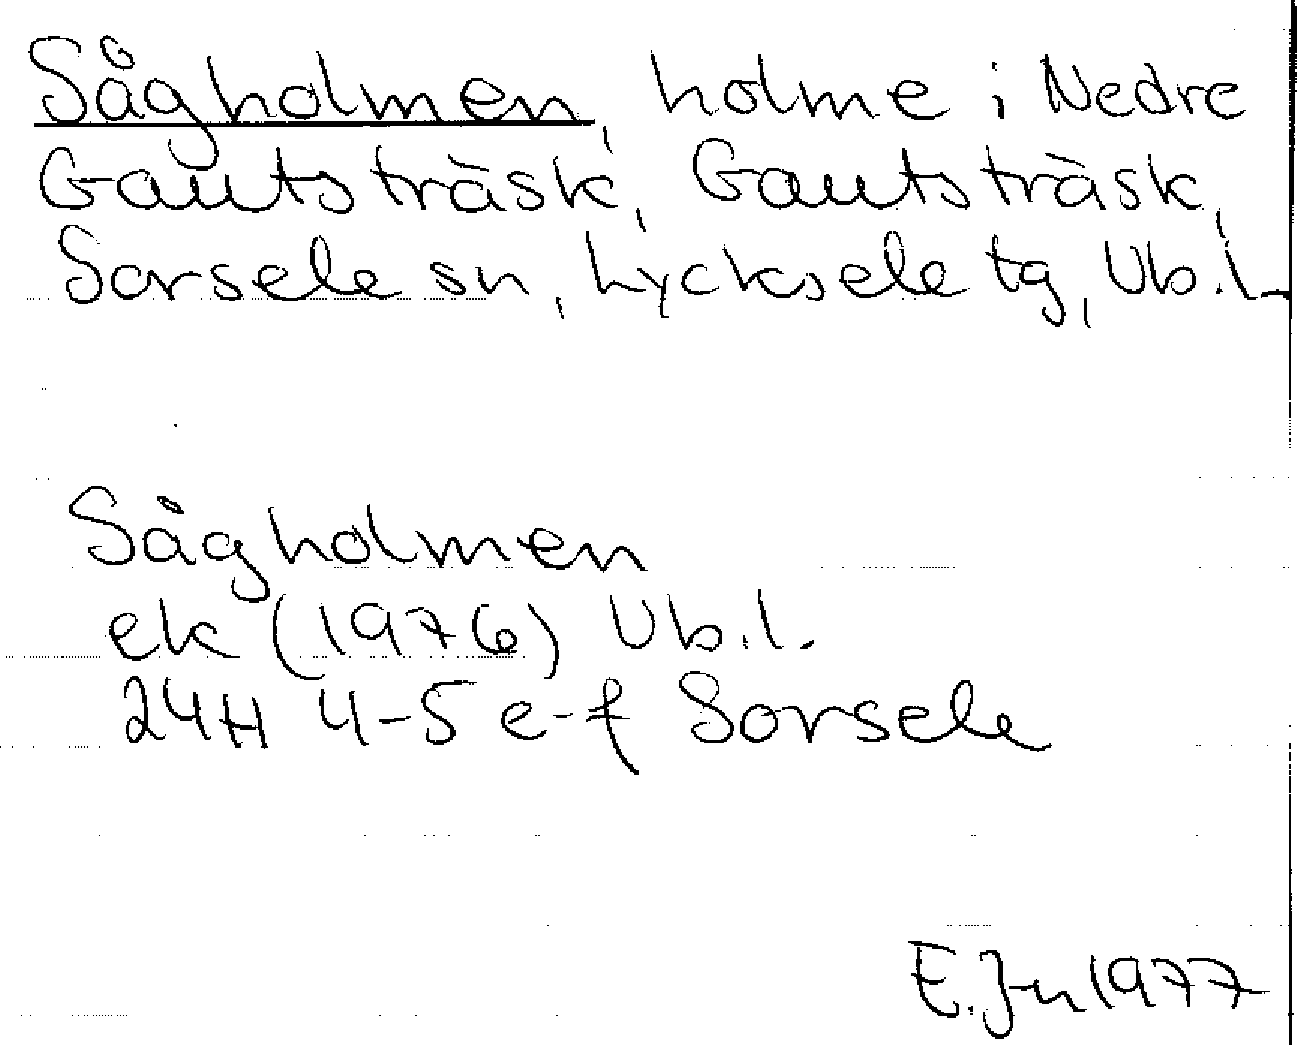 Sågholmen, holme i Nedre
Gautsträsk, Gautsträsk,
Sorsele sn, Lycksele tg, Vb.l.
Sågholmen
ek (1976) Vb.l.
24H 4-5 e-f Sorsele
E.Jn 1977